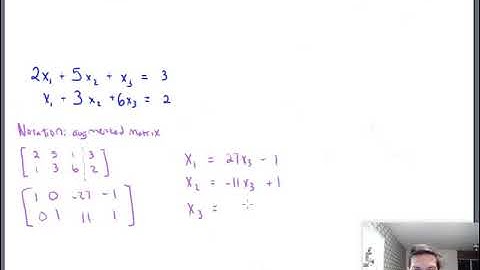 2x₁ + 5x₂ + x₃ = 3
x₁ + 3x₂ + 6x₃ = 2
Notation: augmented matrix
[ 2 5 1 | 3 ]
[ 1 3 6 | 2 ]
[ 1 0 -27 -1 ]
[ 0 1 11 1 ]
x₁ = 27x₃ - 1
x₂ = -11x₃ + 1
x₃ =